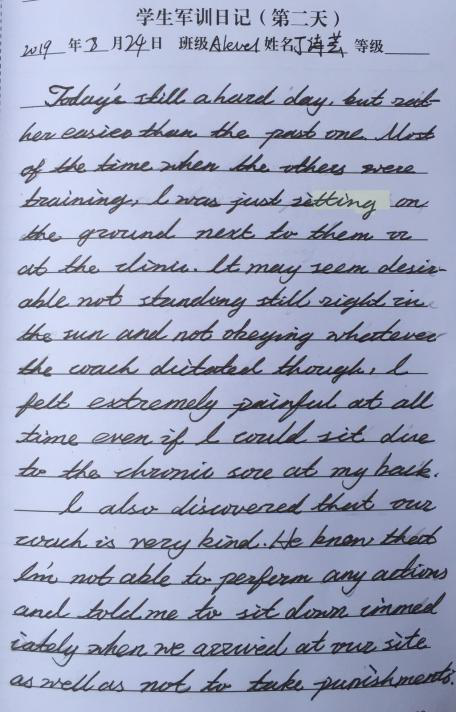 学生军训日记（第二天）
2019 年 8 月 24 日 班级 Alevel 姓名 丁诗芸 等级
Today's still a hard day, but rat-
her easier than the past one. Most
of the time when the others were
training, I was just sitting on
the ground next to them or
at the clinic. It may seem desir-
able not standing still right in
the sun and not obeying whatever
the coach dictated though, I
felt extremely painful at all
time even if I could sit due
to the chronic sore at my back.
I also discovered that our
coach is very kind. He knew that
I'm not able to perform any actions
and told me to sit down immed
iately when we arrived at our site
as well as not to take punishments.